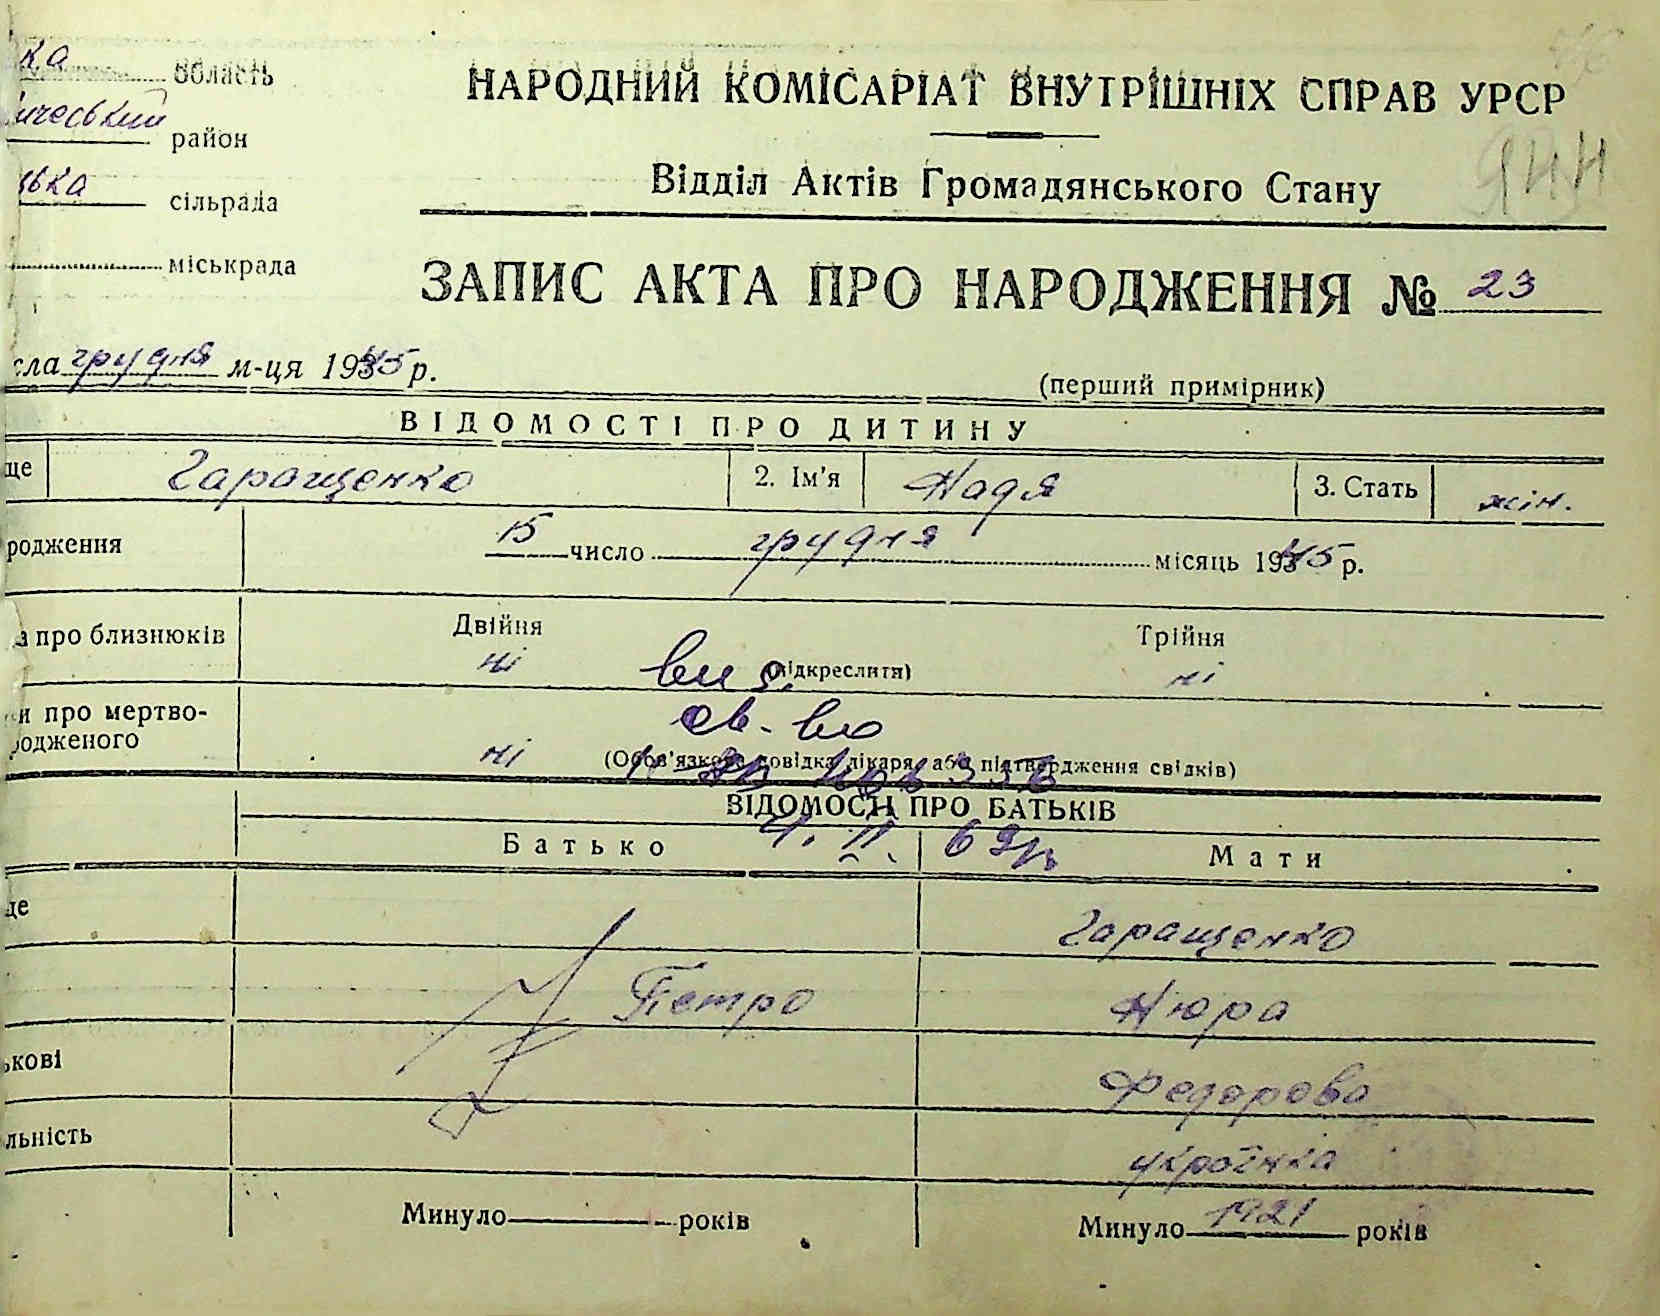 ка область
ический район
ська сільрада
міськрада
НАРОДНИЙ КОМІСАРІАТ ВНУТРІШНІХ СПРАВ УРСР
Відділ Актів Громадянського Стану
ЗАПИС АКТА ПРО НАРОДЖЕННЯ № 23
сла грудня м-ця 1945 р.
(перший примірник)
ВІДОМОСТІ ПРО ДИТИНУ
ще Гаращенко 2. Ім'я Надя 3. Стать жін.
родження 15 число грудня місяць 1945 р.
а про близнюків Двійня ні (підкреслити) Трійня ні
и про мертво-
родженого ні (Обов'язкова довідка лікаря, або підтвердження свідків)
ВІДОМОСТІ ПРО БАТЬКІВ
Батько Мати
ще Гаращенко
Петро Нюра
ькові Федорова
льність українка
Минуло років Минуло 1921 років